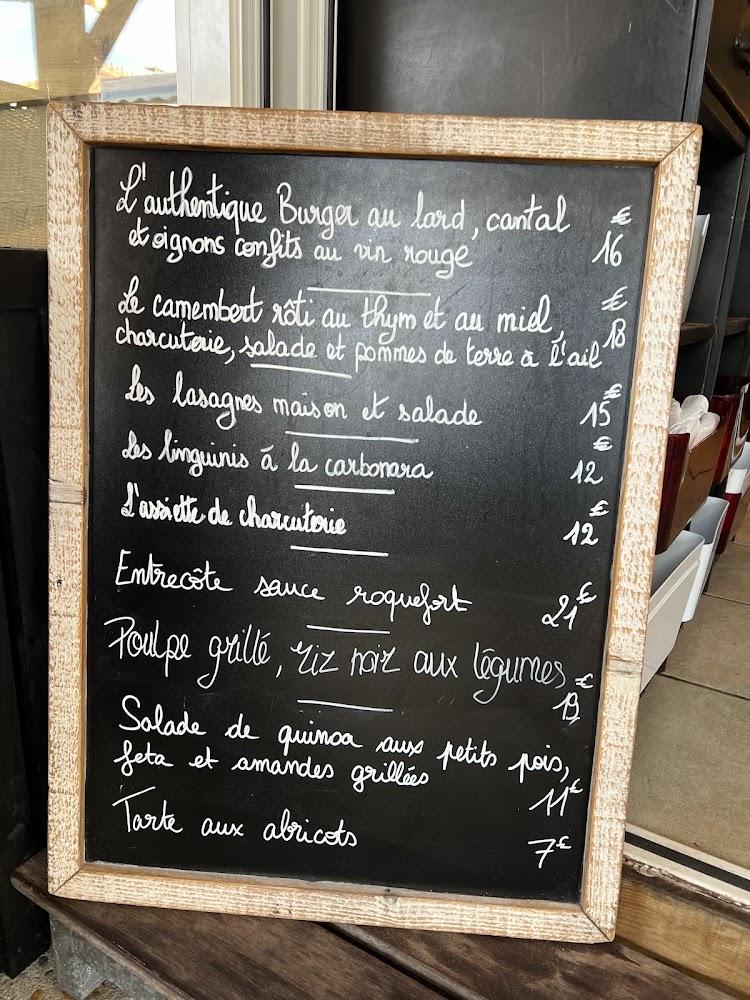 L'authentique Burger au lard, cantal €
et oignons confits au vin rouge 16
Le camembert rôti au thym et au miel, €
charcuterie, salade et pommes de terre à l'ail 18
Les lasagnes maison et salade € 15
Les linguinis à la carbonara € 12
L'assiette de charcuterie € 12
Entrecôte sauce roquefort 21€
Poulpe grillé, riz noir aux légumes €
Salade de quinoa aux petits pois,
feta et amandes grillées 11€
Tarte aux abricots 7€